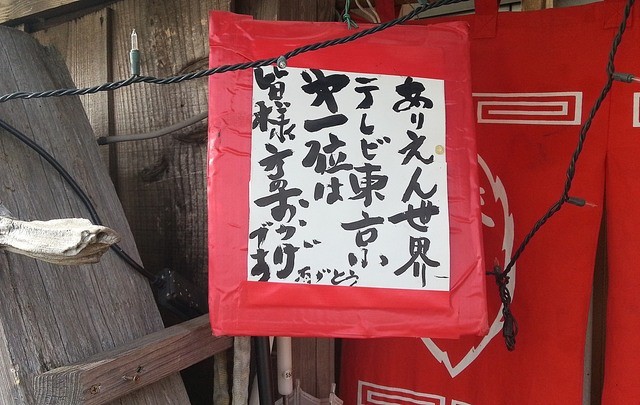 ありえん世界
テレビ東京小
第一位は
皆様方のおかげです
有がとう